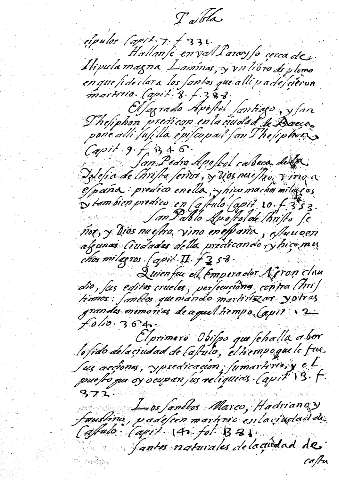 Tabla
cipulos Capit. 7. f 331.
Hallanse en val Parayso cerca de
Ilipula magna Laminas, y vn libro de plomo
en que se declara los santos, que alli padescieron
martirio. Capit. 8. f 338.
El sagrado Apostol santiago, y san
Thesiphon predican en la ciudad de
pone alli su silla episcopal san Thesiphon
Capit. 9. f 346.
san Pedro Apostol cabeza de la
Iglesia de Christo señor, y Dios nuestro, vino a
españa: predico en ella, y hizo muchos milagros,
y tambien predico en Castulo Capit. 10. f 353.
san Pablo Apostol de Christo se
ñor, y Dios nuestro, vino en españa, estuuo en
algunas ciudades della predicando y hiço mu
chos milagros. Capit. 11. f 358.
Quien fue el Emperador Neron clau
dio, sus editos crueles, persecucion contra Chris
tianos: santos que mando martirizar y otras
grandes memorias de aquel tiempo. Capit. 12
folio. 364.
El primero Obispo que se halla a ber
lo sido de la ciudad de Castulo, el tiempo que lo fue
sus acciones, y predicacion, su martirio, y el
puesto que oy ocupan sus reliquias. Capit. 13. f.
372.
Los santos Marco, Hadriano, y
faustino, padescen martirio en la ciudad de
Castulo. Capit. 14. fol. 381.
santos naturales de la ciudad de
castu